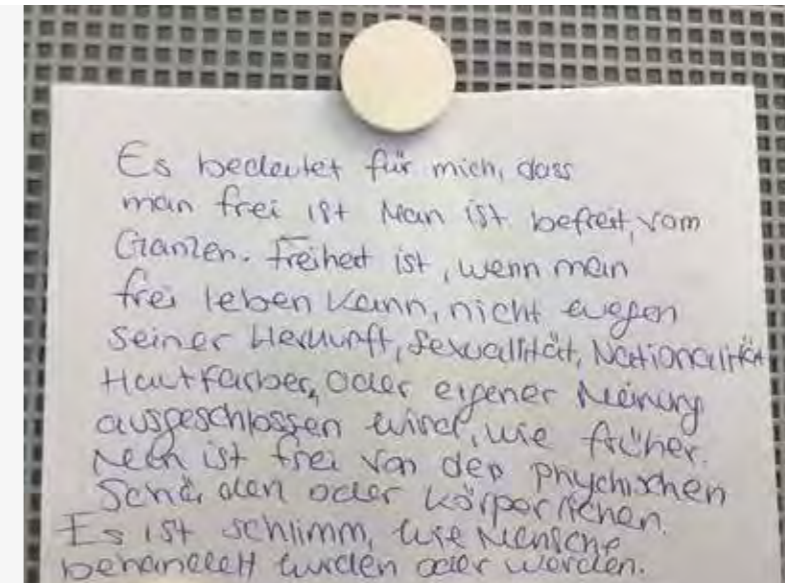 Es bedeutet für mich, dass
man frei ist Man ist befreit, vom
Ganzen. Freiheit ist, wenn man
frei leben kann, nicht wegen
seiner Herkunft, Sexualität, Nationalität
Hautfarber, oder eigener Meinung
ausgeschlossen wird, wie früher.
Man ist frei von den phychischen
Schäden oder körperlichen.
Es ist schlimm, wie Mensche
behandelt wurden oder werden.